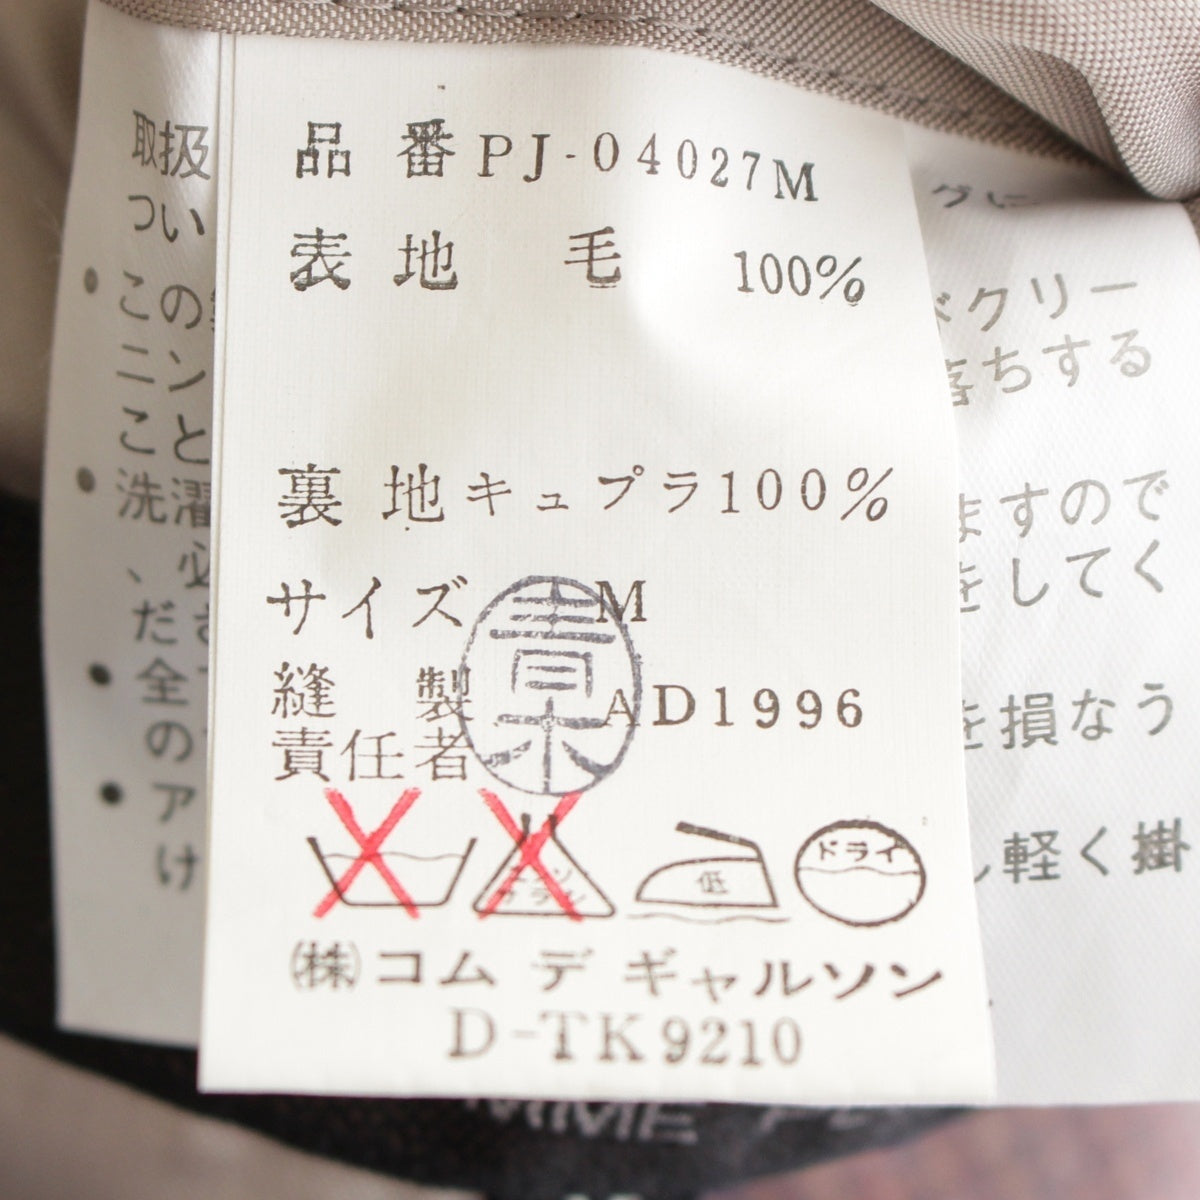 品番 PJ-04027M
表地 毛 100%
裏地 キュプラ 100%
サイズ M
縫製 AD1996
責任者
青木
ドライ
低
エンソ
サラシ
㈱コム デ ギャルソン
D-TK9210
取扱
つい
グに
・この
ドクリー
ニン
落ちする
こと
・洗濯
ますので
、必
をしてく
ださ
・全て
を損なう
の
・ア
し軽く掛
け
MME PL